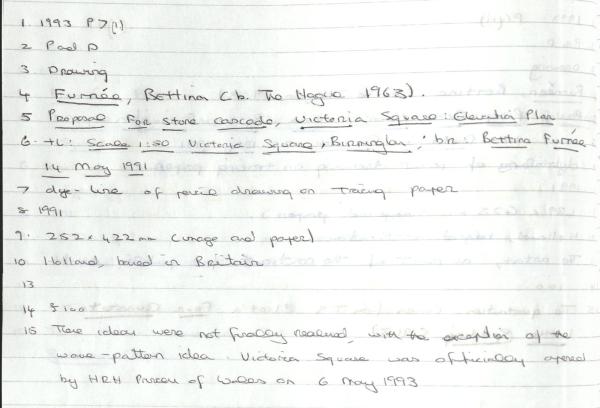 1. 1993 P7(1)
2 P and D
3 Drawing
4 Furnée, Bettina (b. The Hague 1963).
5 Proposal For Stone Cascade, Victoria Square: Elevation Plan
6. tL: Scale 1:50 Victoria Square, Birmingham; bR: Bettina Furnée,
14 May 1991
7 dye-line of pencil drawing on Tracing paper
8 1991
9. 252 x 422 mm (image and paper)
10 Holland, based in Britain
13
14 £100
15 These ideas were not finally realised, with the exception of the
wave-pattern idea. Victoria Square was officially opened
by HRH Princess of Wales on 6 May 1993